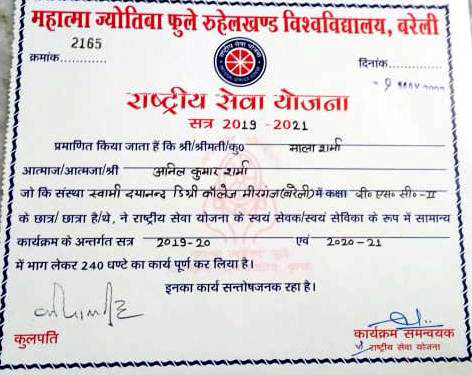 महात्मा ज्योतिबा फुले रुहेलखण्ड विश्वविद्यालय, बरेली
2165
क्रमांक..............
दिनांक..............
राष्ट्रीय सेवा योजना
सत्र 2019 -2021
प्रमाणित किया जाता हैं कि श्री/श्रीमती/कु० माला शर्मा
आत्माज/आत्मजा/श्री अनिल कुमार शर्मा
जो कि संस्था स्वामी दयानन्द डिग्री कॉलेज मीरगंज(बरेली) में कक्षा बी० एस० सी०-II
के छात्र/ छात्रा है/थे, ने राष्ट्रीय सेवा योजना के स्वयं सेवक/स्वयं सेविका के रूप में सामान्य
कार्यक्रम के अन्तर्गत सत्र 2019-20 एवं 2020-21
में भाग लेकर 240 घण्टे का कार्य पूर्ण कर लिया है।
इनका कार्य सन्तोषजनक रहा है।
कुलपति
कार्यक्रम समन्वयक
राष्ट्रीय सेवा योजना